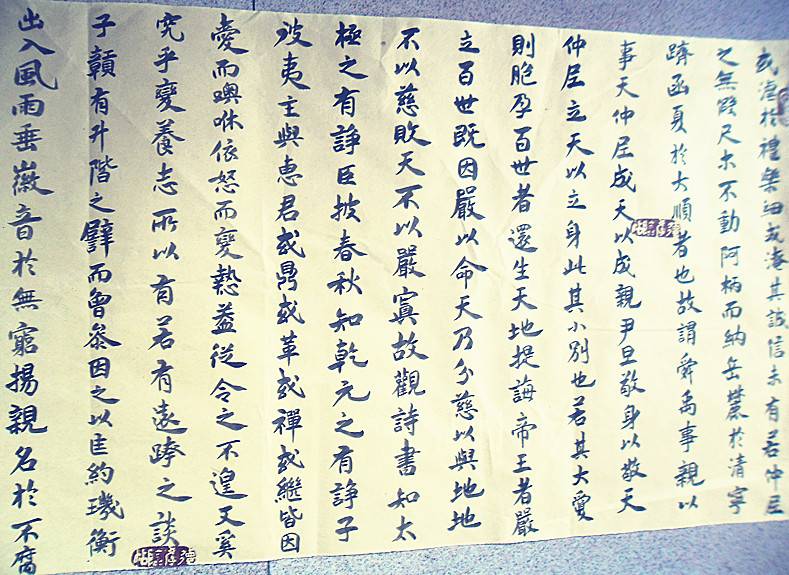 或進於禮樂細或淹其誠信未有若仲尼
之無階尺木不動阿柄而納岳麓於清寧
躋函夏於大順者也故謂舜禹事親以
事天仲尼成天以成親尹旦敬身以敬天
仲尼立天以立身此其小別也若其大愛
則胞孕百世者還生天地提誨帝王者嚴
立百世既因嚴以命天乃分慈以與地地
不以慈敗天不以嚴寞故觀詩書知太
極之有諍臣披春秋知乾元之有諍子
波夷主與惠君或鼎或革或禪或繼皆因
愛而噢咻依怒而變熱益從令之不遑又奚
究乎變養志所以有若有遠跨之談
子贛有升階之譬而曾參因之以匡約璣衡
出入風雨垂徽音於無窮揚親名於不腐